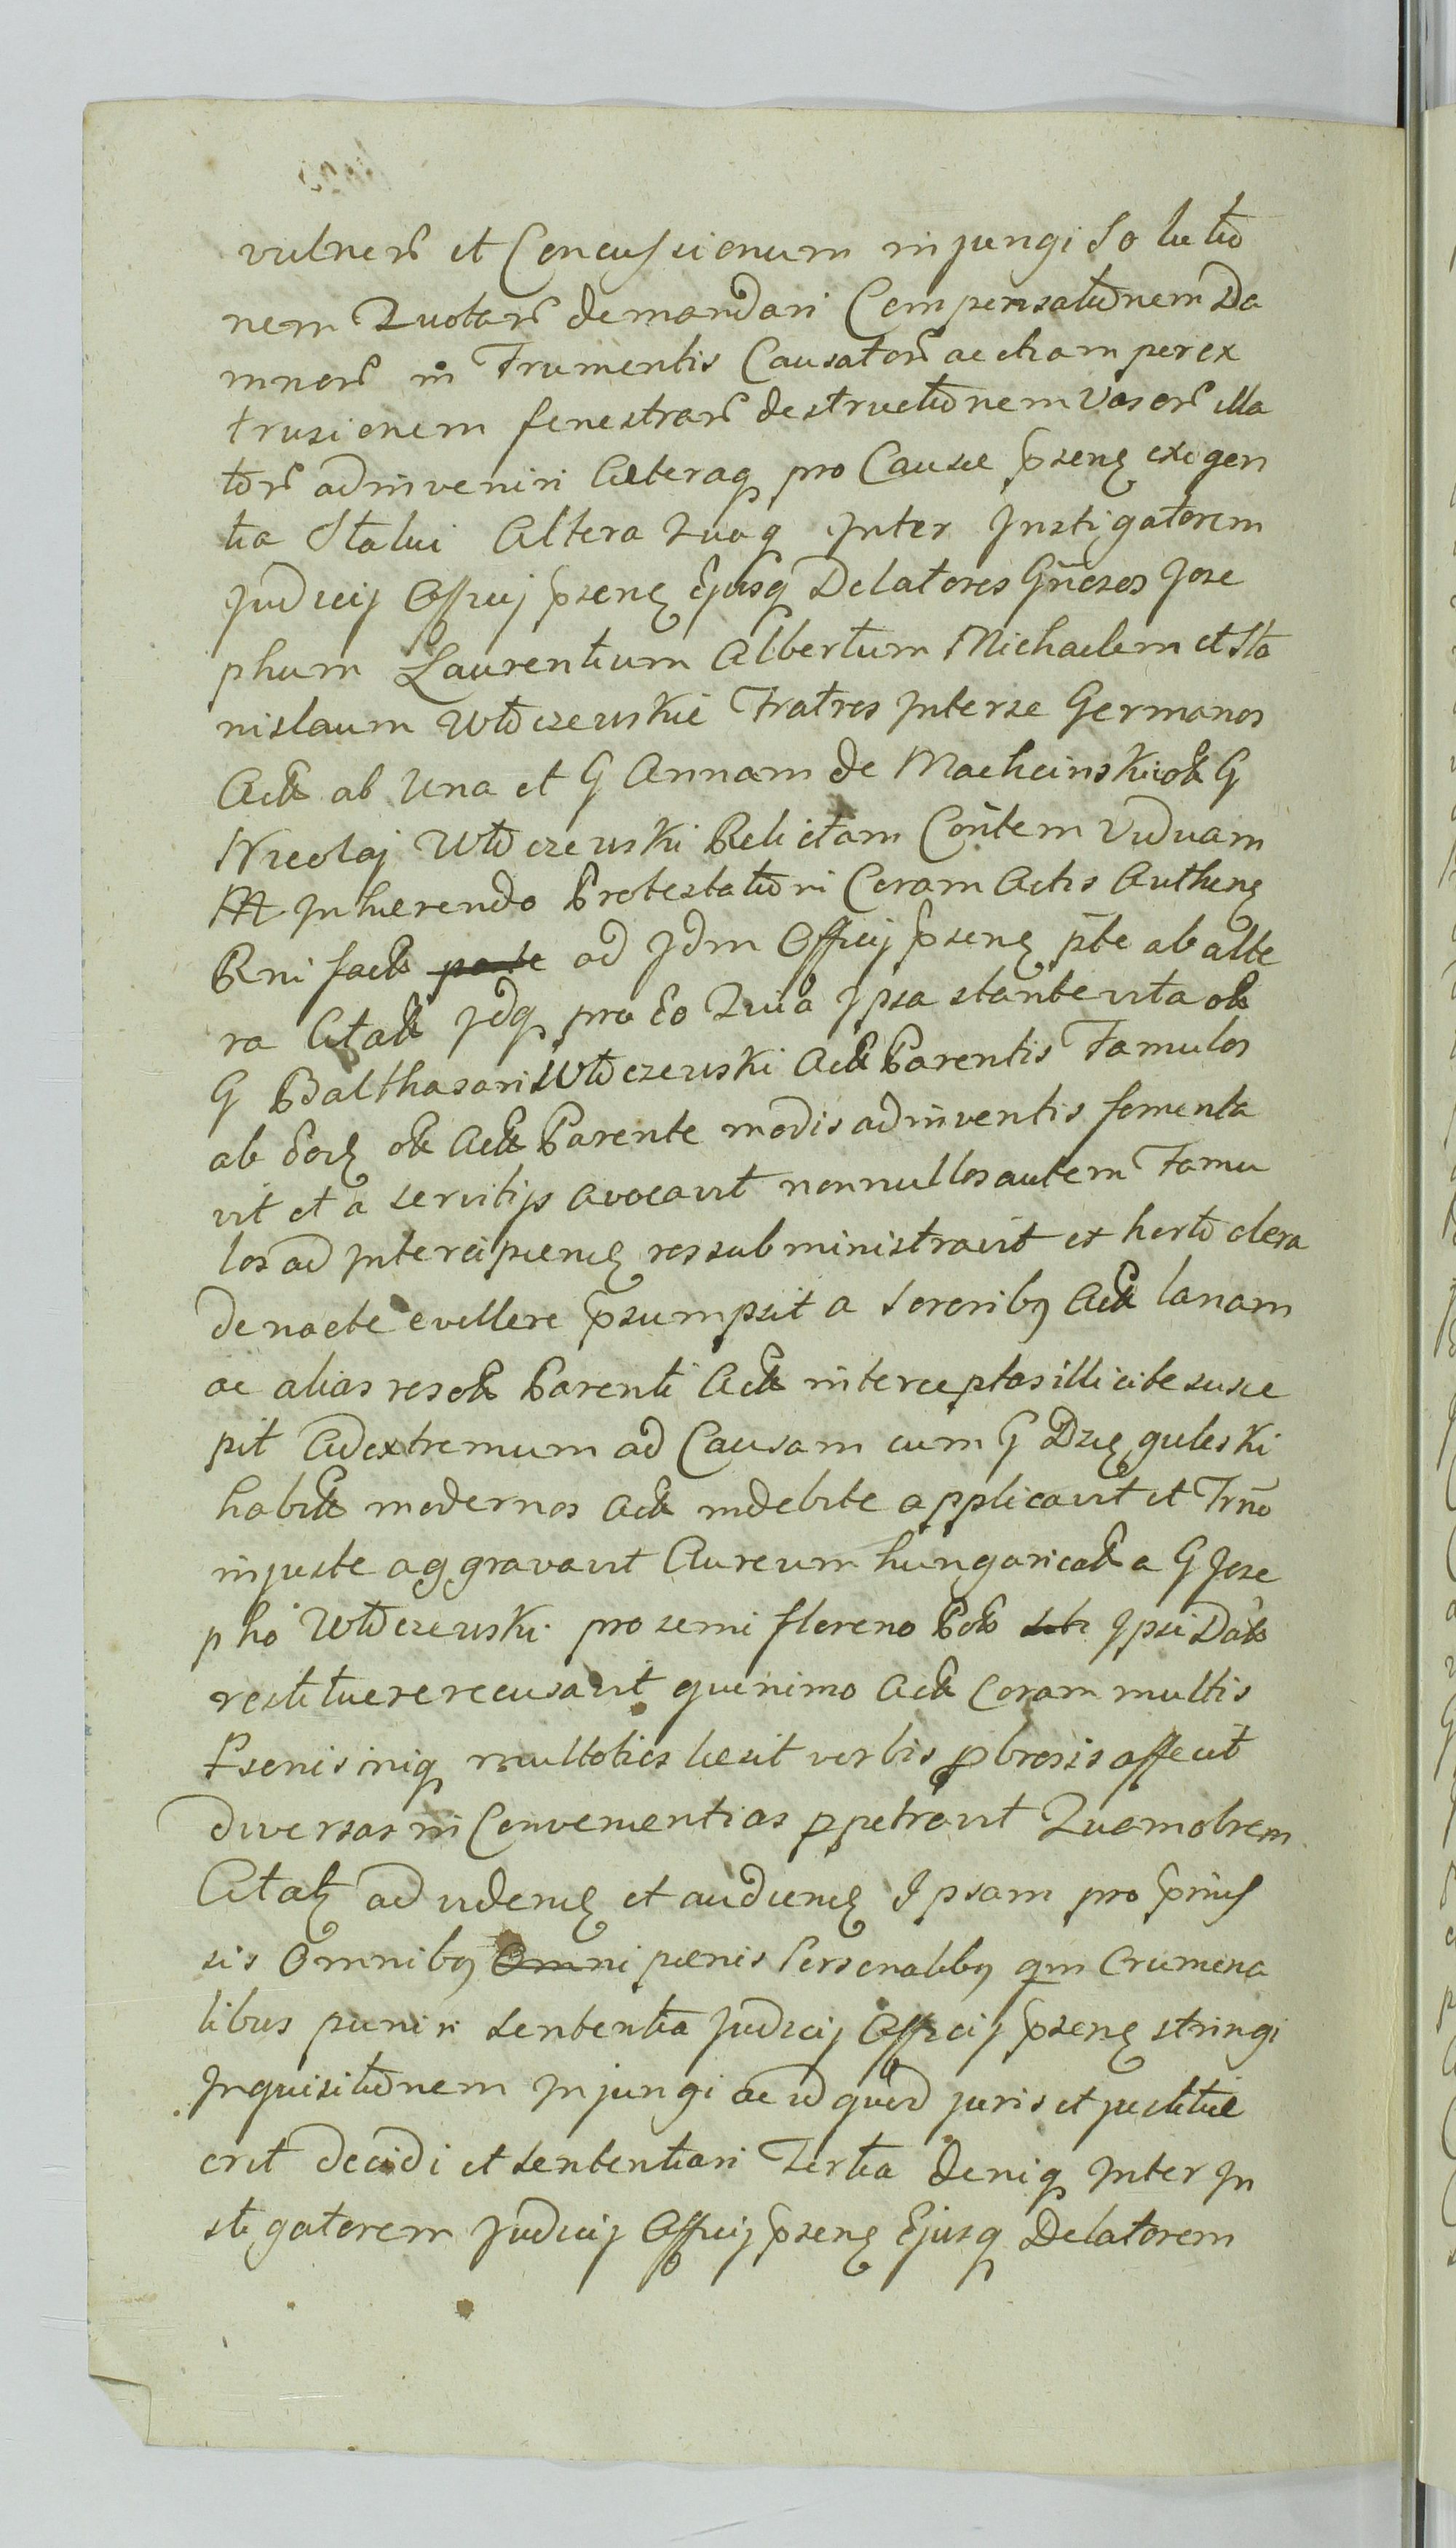 vulner et Concussionum injungi Solutio
nem Quotar demandari Compensationem Da
mnor in Frumentis Causator ac etiam per ex
trusionem fenestrar destructionem Vasor illa
tor adinveniri Caeteraq pro Causae pseng exigen
tia Statui Altera Quoq Inter Instigatorem
Judicij Officij pseng Ejusq Delatores Gnosos Jose
phum Laurentium Albertum Michaelem et Sta
nislaum Wtoczewskie Fratres Interse Germanos
Act ab Una et G Annam de Machcinskie olt G
Nicolaj Wtoczewski Relictam Contem Viduam
Inhaerendo Protestationi Coram Actis Autheng
Rni facts <s>parte</s> ad Jdm Officij pseng pte ab alte
ra Citatt Jdq pro Eo Quia Ipsa stante vita olt
G Balthasaris Wtoczewski Act Parentis Famulos
ab Eodg olt Act Parente modis adinventis fomenta
vit et a servitijs avocavit nonnullos autem Famu
los ad Intercipieng res subministravit et horto olera
de nocte evellere psumpsit a Sororibq Act lanam
ac alias res olt Parenti Act interceptas illicite susce
pit Ad extremum ad Causam cum G Dzięguleski
habitt modernos Act indebite applicavit et Trno
injuste aggravavit Aureum hungaricalt a G Jose
pho Wtoczewski pro semi floreno Pol <s>sib</s> Ipsi Dats
restituere recusavit quinimo Act Coram multis
Psonis iniq multoties laesit verbis pbrosis affecit
diversas in Convenientias ppetravit Quamobrem
Citatg ad videng et audieng Ipsam pro pmis
sis Omnibq <s>Omni</s> paenis Personalibq qm Crumena
libus puniri Sententia Judicij Officij pseng stringi
Inquisitionem Injungi ac id quid juris et justitiae
erit decidi et Sententiari Tertia Deniq Inter In
stigatorem Judicij Officij pseng Ejusq Delatorem